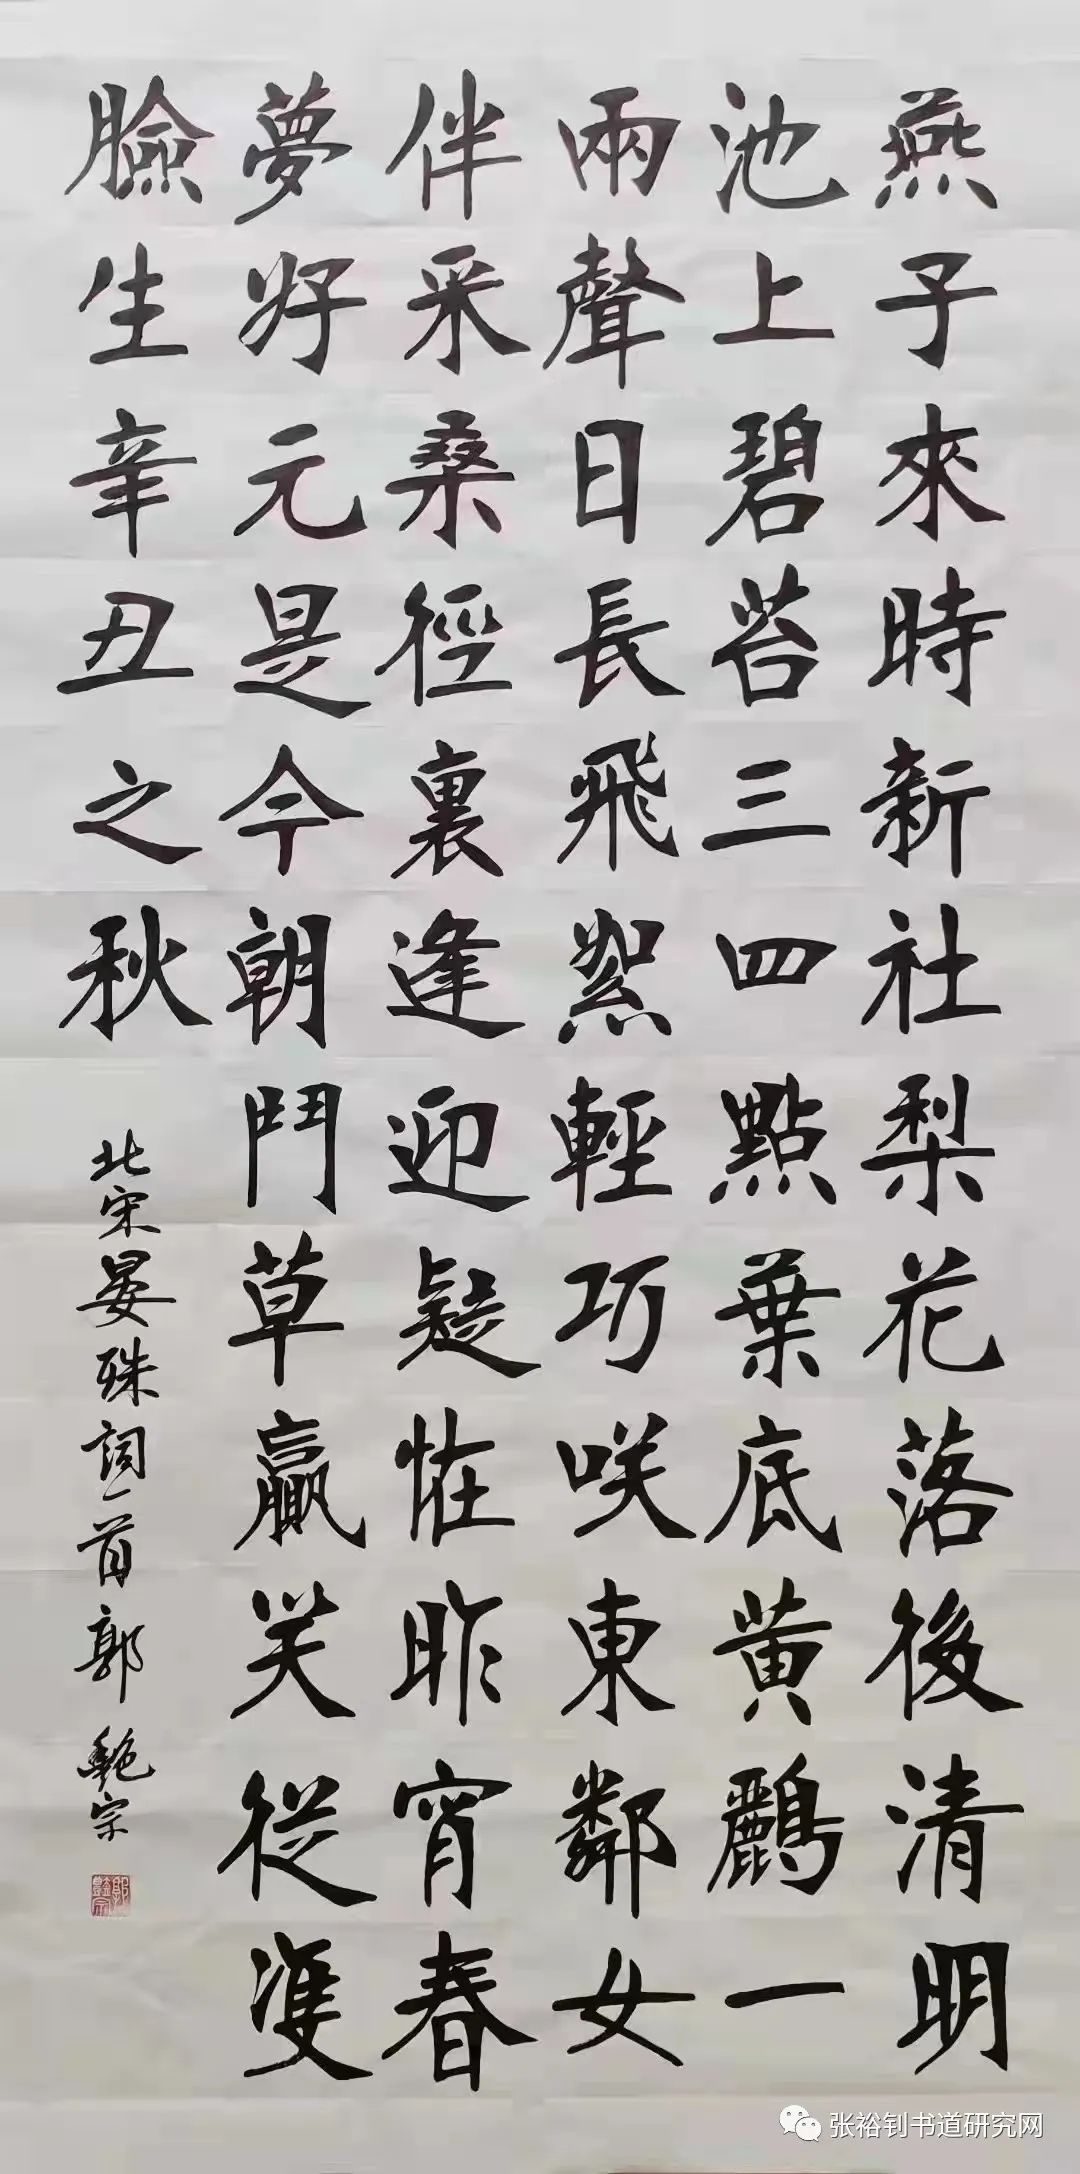 燕子來時新社梨花落後清明
池上碧苔三四點葉底黄鸝一
兩聲日長飛絮輕巧咲東鄰女
伴采桑徑裏逢迎疑恠昨宵春
夢好元是今朝鬥草贏笑從雙
臉生辛丑之秋
北宋晏殊詞一首郭宗
张裕钊书道研究网